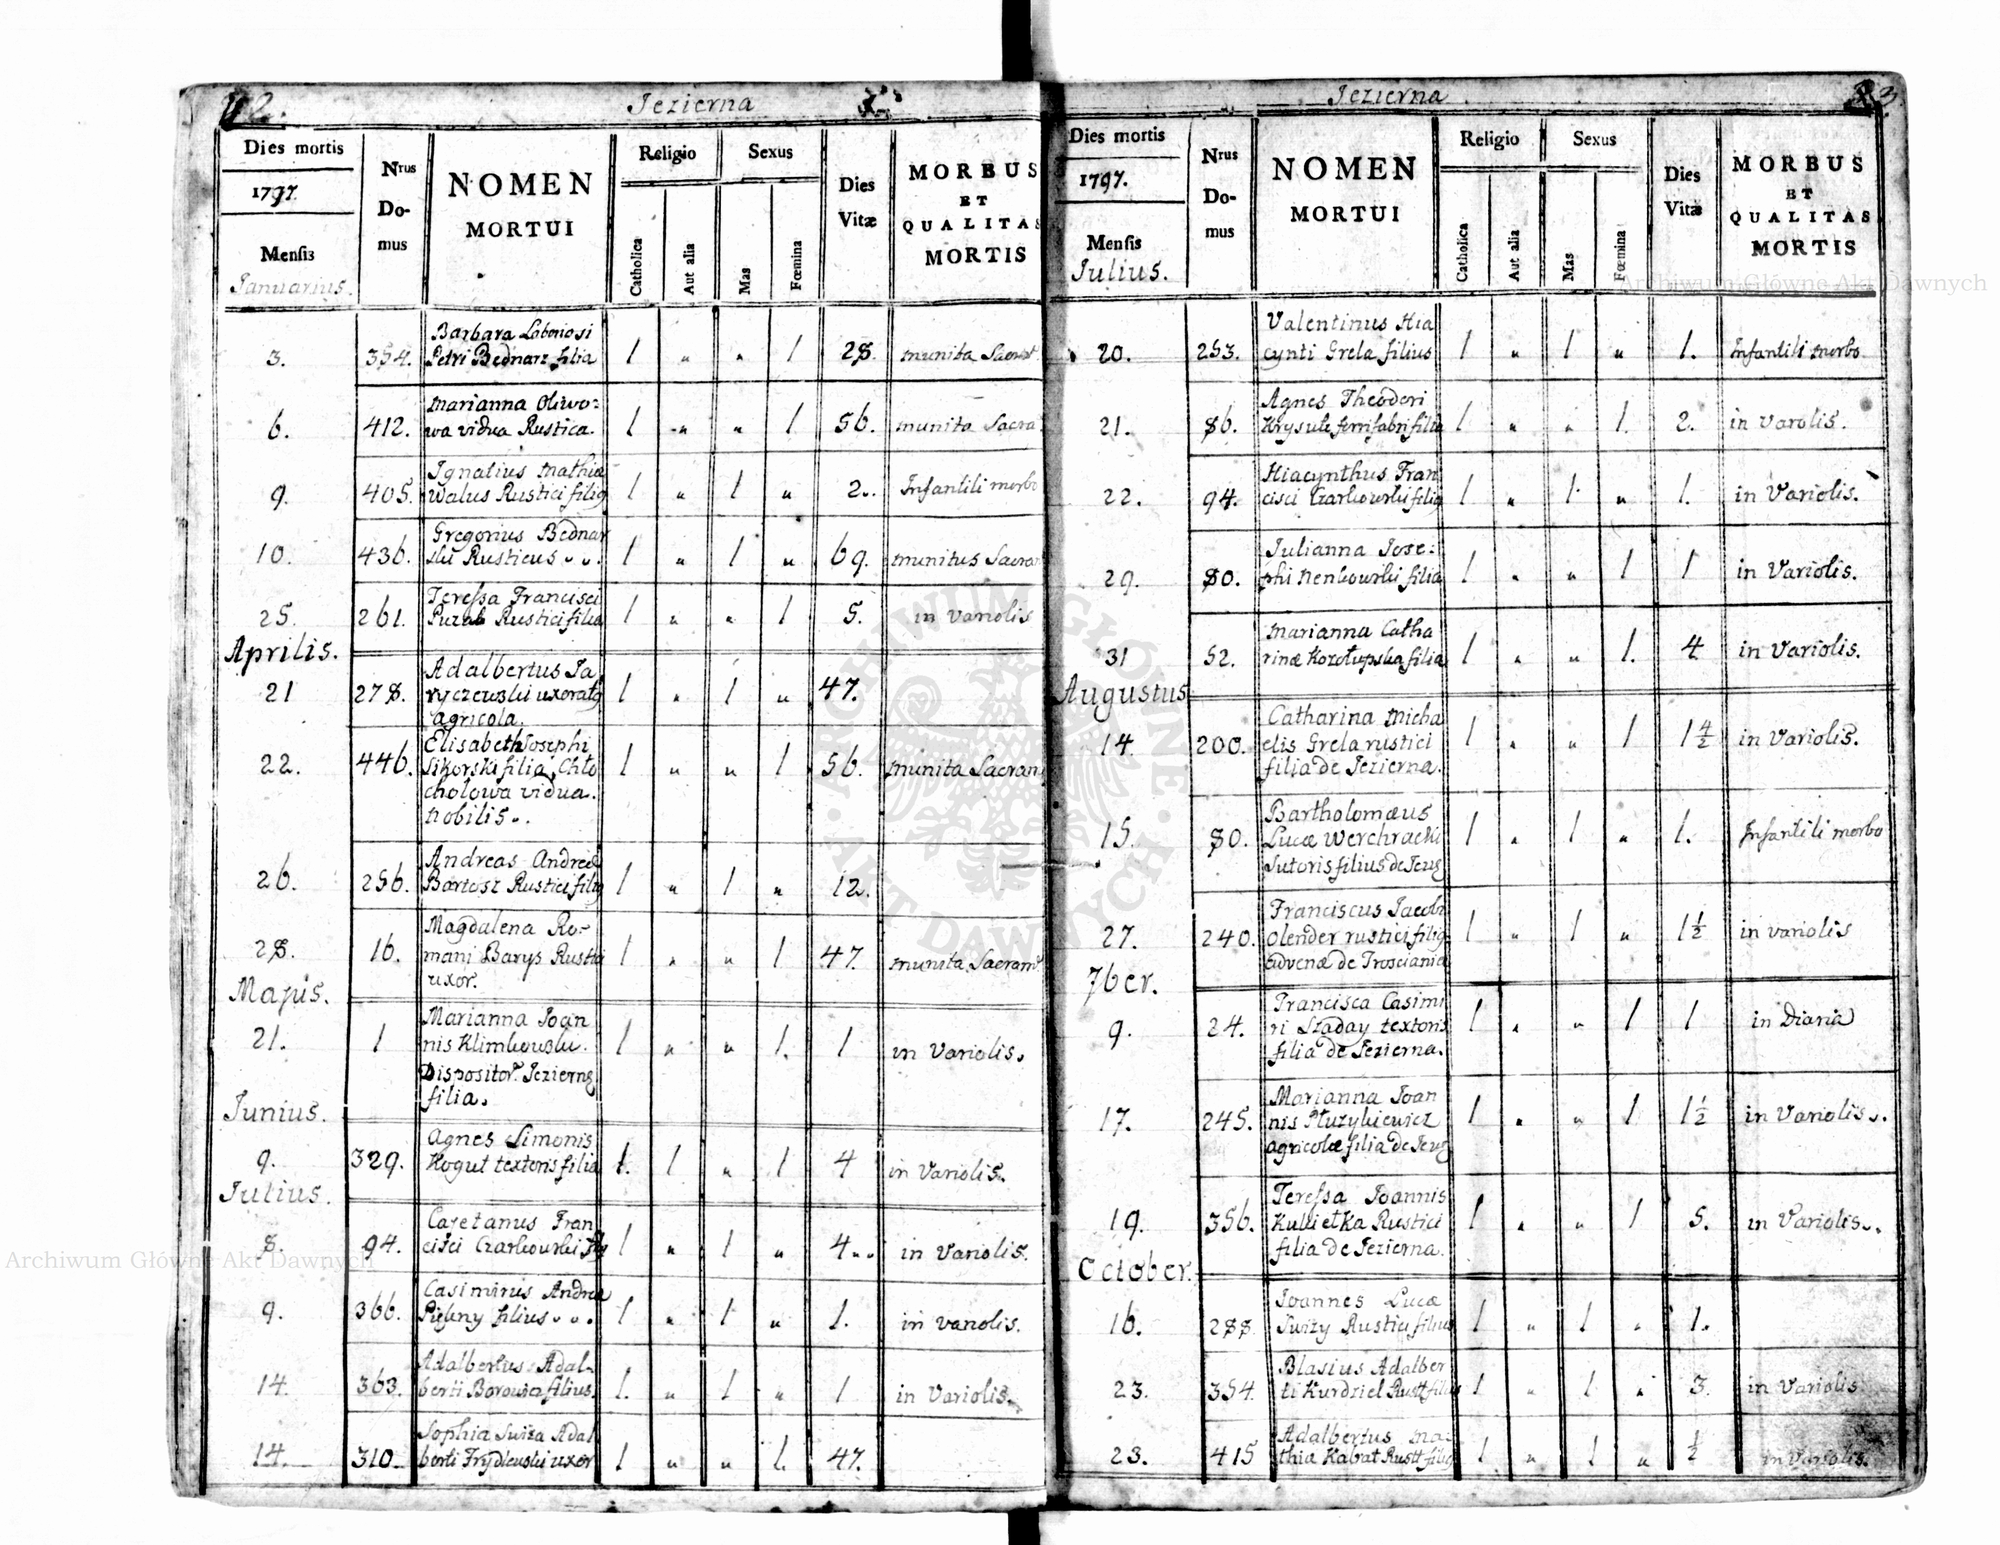 Jezierna
Dies mortis
1797.
Mensis
Januarius.
Nrus
Do-
mus
NOMEN
MORTUI
Religio
Catholica
Aut alia
Sexus
Mas
Fœmina
Dies
Vitæ
MORBUS
ET
QUALITAS
MORTIS
Barbara Loboriosi
3. 354. Petri Bednarz filia 1 " " 1 28. munita Sacrat
Marianna Oliwo=
6. 412. wa vidua Rustica. 1 " " 1 56. munita Sacra
Ignatius Mathia
9. 405. Walus Rustici filig 1 " 1 " 2.. Infantili morbo
Gregorius Bednar
10. 436. ski Rusticus . . . 1 " 1 " 69. munitus Sacra
Teressa Francisci
25. 261. Puzab Rustici filia 1 " " 1 5. in Variolis
Aprilis.
Adalbertus Ja
21 278. ryczewski uxoratg 1 " 1 " 47.
agricola.
Elisabeth Josephi
22. 446. Sikorski filia, Chło 1 " " 1 56. munita Sacram
chołowa vidua.
nobilis..
Andreas Andreæ
26. 256. Bartosz Rustici filig 1 " 1 " 12.
Magdalena Ro-
28. 16. mani Barys Rustici 1 " " 1 47. munita Sacram.
uxor.
Majus.
Marianna Joan
21. 1 nis Klimkowski. 1 " " 1. 1 in Variolis.
Dispositor. Jezierng
filia.
Junius.
Agnes Simonis
9. 329. Kogut textoris filia 1. 1 " 1 4 in Variolis.
Julius.
Cajetanus Fran
8. 94. cisci Czarkowski filg 1 " 1 " 4.. in Variolis.
Casimirus Andreæ
9. 366. Piękny filius . . . 1 " 1 " 1. in variolis.
Adalbertus Adal-
14. 363. berti Borowicz filius. 1. " 1 " 1 in Variolis.
Sophia Swiza Adal
14. 310. berti Frydlewski uxor 1 " " 1. 47.
Jezierna
Dies mortis
1797.
Mensis
Julius.
Nrus
Do-
mus
NOMEN
MORTUI
Religio
Catholica
Aut alia
Sexus
Mas
Fœmina
Dies
Vitæ
MORBUS
ET
QUALITAS
MORTIS
Valentinus Hia
20. 253. cynti Grela filius 1 " 1 " 1. Infantili morbo
Agnes Theodori
21. 86. Krysule ferrifabri filia 1 " " 1. 2. in varolis.
Hiacynthus Fran
22. 94. cisci Czarkowski filig 1 " 1 " 1. in Variolis.
Julianna Jose=
29. 80. phi Nenkowski filia 1 " " 1 1 in Variolis.
Marianna Catha
31 52. rinæ Kozołupska filia 1 " " 1. 4 in Variolis.
Augustus
Catharina Micha
14. 200. elis Grela rustici 1 " " 1 1 4/2 in Variolis.
filia de Jezierna.
Bartholomæus
15. 80. Lucæ Werchracki 1 " 1 " 1. Infantili morbo
Sutoris filius de Jezg
Franciscus Jacobi
27. 240. Olender rustici filig 1 " 1 " 1 1/2 in variolis
advenæ de Trosciania
7ber.
Francisca Casimi
9. 24. ri Szaday textoris 1 " " 1 1 in Diaria
filia de Jezierna.
Marianna Joan
17. 245. nis Płuzykiewicz 1 " " 1 1 1/2 in Variolis..
agricolæ filia de Jezg
Teressa Joannis
19. 356. Kulkietka Rustici 1 " " 1 5. in Variolis..
filia de Jezierna.
October.
Joannes Lucæ
16. 288 Swizy Rustici filius 1 " 1 " 1.
Blasius Adalber
23. 354. ti Kurdziel Rust filius 1 " 1 " 3. in Variolis
Adalbertus Ma=
23. 415 thia Kabat Rust filig 1 " 1 " 1/2 in Variolis.
Archiwum Główne Akt Dawnych
Archiwum Główne Akt Dawnych
ARCHIWUM GŁÓWNE
AKT DAWNYCH